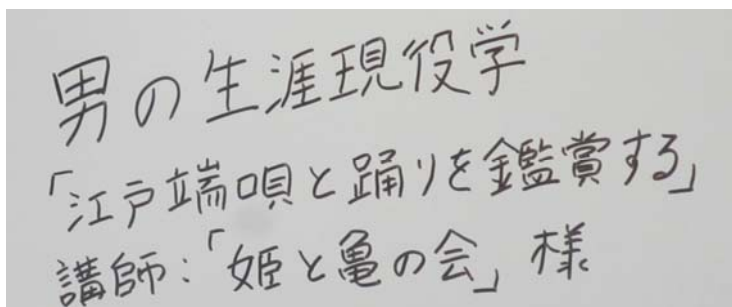 男の生涯現役学
「江戸端唄と踊りを鑑賞する」
講師:「姫と亀の会」様